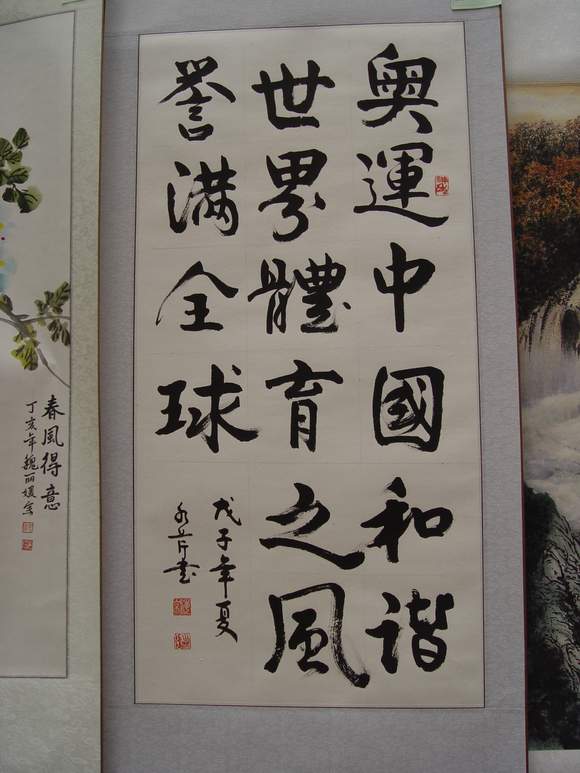 奧運中國和諧
世界體育之風
譽满全球
戊子年夏
春風得意
丁亥年魏丽